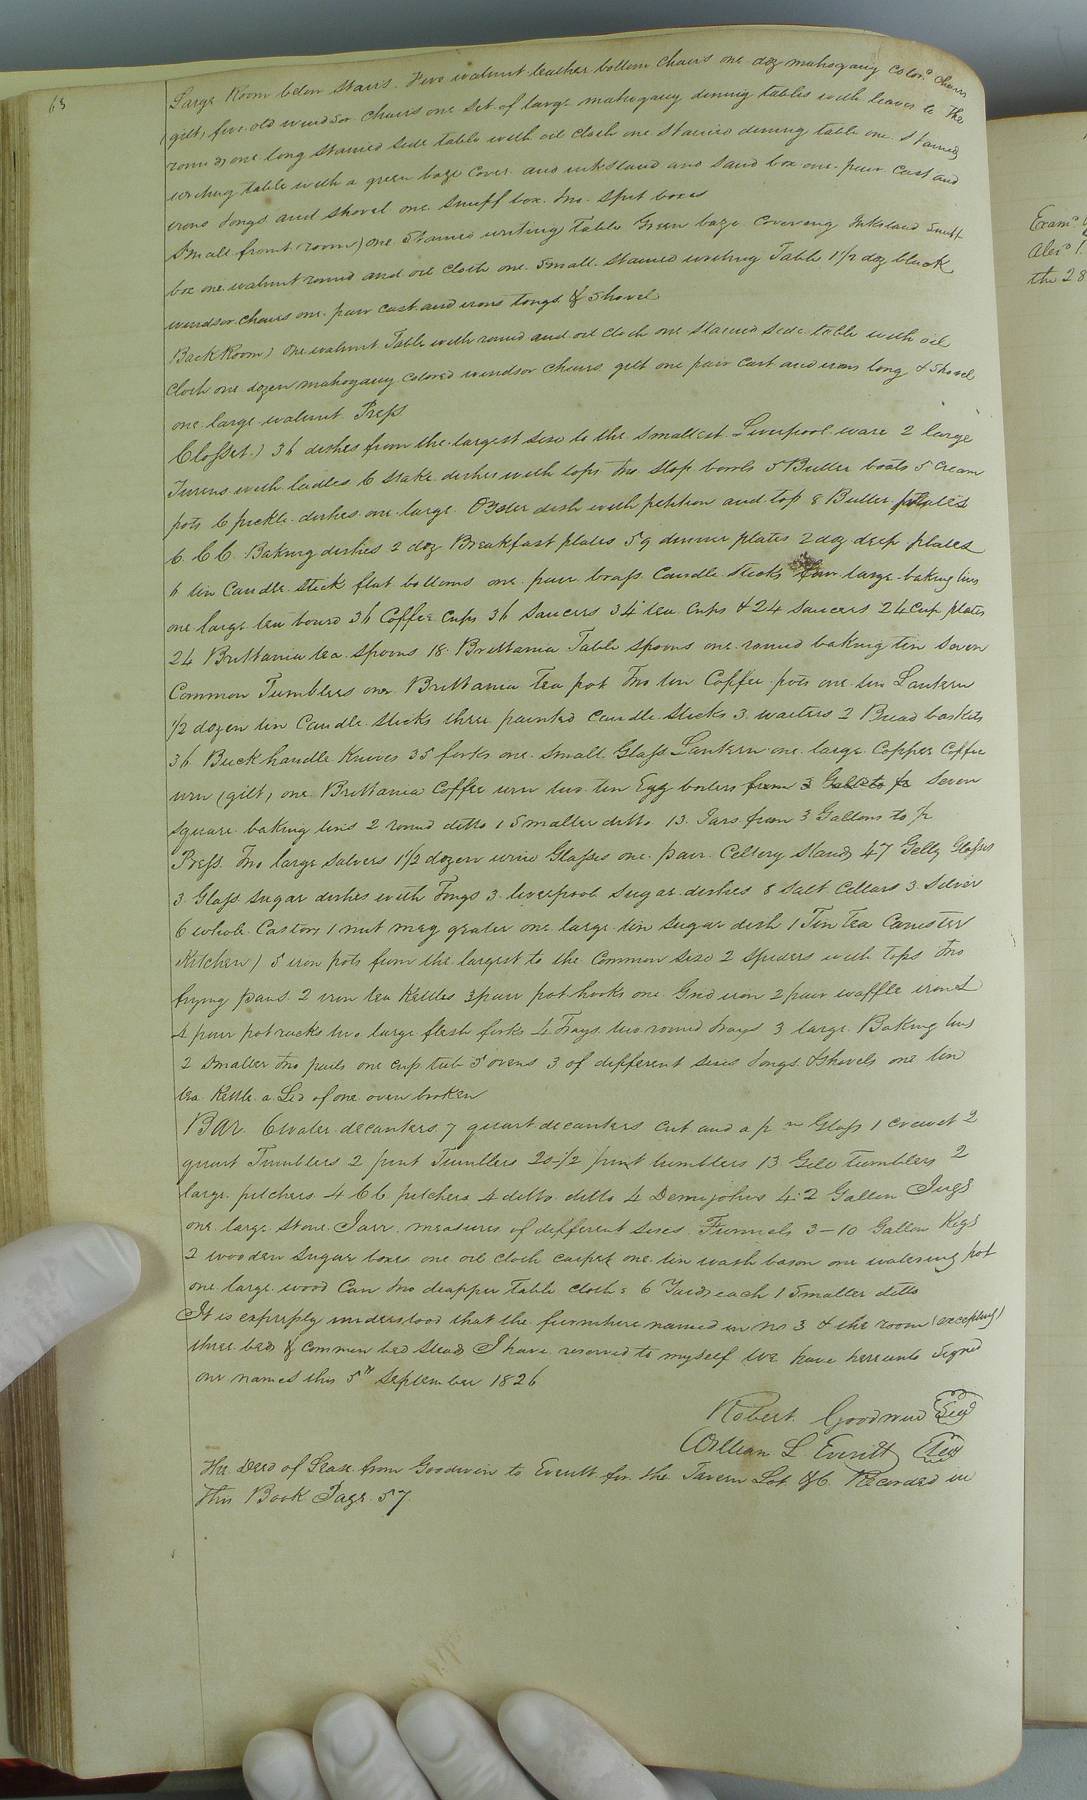 63
Large Room below Stairs. Five walnut leather bottom chairs one doz mahogany color.d chairs
(gilt) five old windsor chairs one set of large mahogany dining tables with leaves to the
round) one long stained side table with oil cloth one stained dining table one stained
writing table with a green baze cover and inkstand and sand box one pair cast and
irons tongs and shovel one snuff box two spit boxes
Small front room) one stained writing table Green baze covering Inkstand snuff
box one walnut round and oil cloth one small stained writing Table 1 1/2 doz black
windsor chairs one pair cast and irons tongs & shovel
Back Room) One walnut Table with round and oil cloth one stained side table with oil
Cloth one dozen mahogany colored windsor chairs gilt one pair cast and irons tong & shovel
one large walnut Press
Closset.) 36 dishes from the largest size to the smallest Liverpool ware 2 large
Turens with ladles 6 stake dishes with tops two slop bowls 5 Butter boats 5 cream
pots 6 pickle dishes one large Oyster dish with petition and top 8 Butter plates
6 C C. Baking dishes 2 doz Breakfast plates 59 dinner plates 2 doz deep plates
6 tin Candle stick flat bottoms one pair brass Candle sticks four large baking tins
one large tea board 36 Coffee cups 36 saucers 34 tea cups & 24 saucers 24 Cup plates
24 Brittania tea spoons 18 Brittania Table spoons one round baking tin Seven
Common Tumblers one Brittania Tea pot two tin Coffee pots one tin Lantern
1/2 dozen tin Candle sticks three painted candle sticks 3 waiters 2 Bread baskets
36 Buck handle Knives 35 forks one small Glass Lantern one large Copper Coffee
urn (gilt) one Brittania Coffee urn two tin Egg boilers from 3 Galls to Seven
square baking tins 2 round ditto 1 Smaller ditto 13 Jars from 3 Gallons to
Press. Two large salvers 1 1/2 dozen wine Glasses one pair Cellery stands 47 Gelly Glasses
3 Glass sugar dishes with Tongs 3 liverpool sugar dishes 8 salt cellars 3 Silver
6 whole Castors 1 nut meg grater one large tin sugar dish 1 Tin Tea Canester
Kitchen) 5 iron pots from the largest to the Common size 2 spiders with tops two
frying pans 2 iron tea Kettles 3 pair pot hooks one Grid iron 2 pair waffle irons
4 pair pot racks two large flesh forks 4 Trays two round trays 3 large Baking tins
2 smaller two pails one cup tub 5 ovens 3 of different sises tongs & shovels one tin
tea Kettle a Lid of one oven broken
BAR. 6 water decanters 7 quart decanters cut and a p n Glass 1 cruvet 2
quart Tumblers 2 pint Tumblers 20 1/2 pint tumblers 13 Gill tumblers 2
large pitchers 4 C C pitchers 4 ditto ditto 4 Demijohns 4: 2 Gallon Jugs
one large stone Jarr. measures of different sises Funnels 3 – 10 Gallon Kegs
2 wooden sugar boxes one oil cloth carpet one tin wash bason one watering pot
one large wood Can two deapper table cloths 6 Yards each 1 Smaller ditto
It is expressly understood that the furniture named in No 3 & the room (excepting)
three beds & common bed steads I have reserved to myself We have hereunto signed
our names this 5th September 1826
Robert Goodwin Seal
William L Everitt Seal
The Deed of Lease from Goodwin to Everitt for the Tavern Lot &C. Recorded in
This Book Page 57
Exam.d
the 28